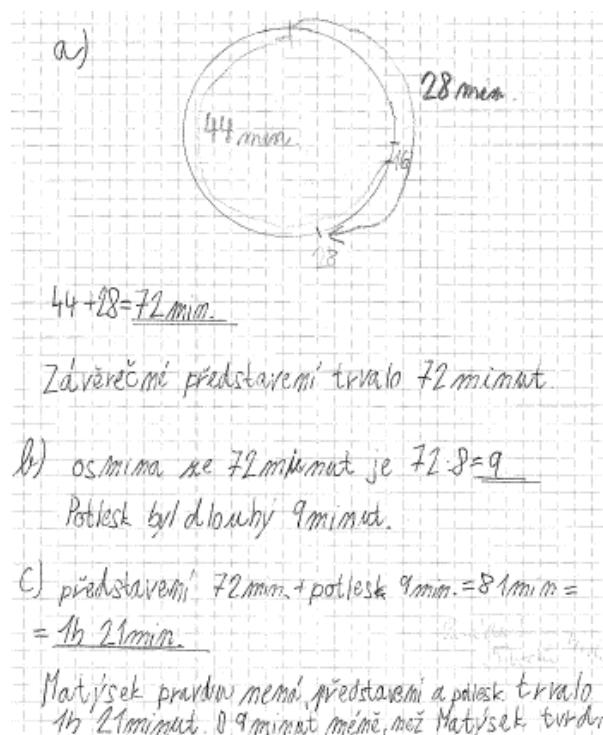 a)
28 min.
44 min
16
28
44 + 28 = 72 min.
Závěrečné představení trvalo 72 minut
b) osmina ze 72 minut je 72 : 8 = 9
Potlesk byl dlouhý 9 minut.
c) představení 72 min. + potlesk 9 min. = 81 min =
= 1h 21 min.
Matýsek pravdu nemá, představení a potlesk trvalo
1h 21 minut. O 9 minut méně, než Matýsek tvrdí